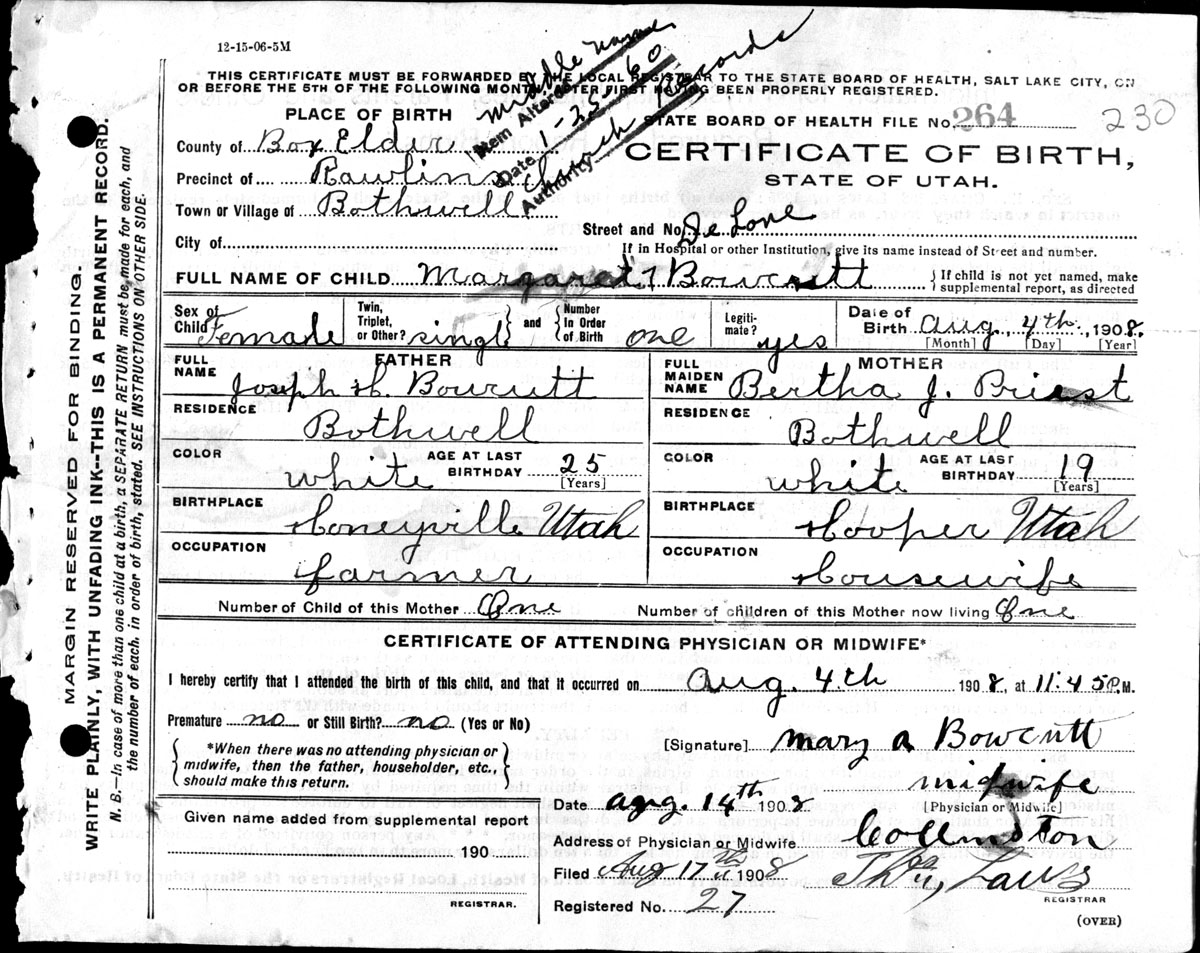 12-15-06-5M
THIS CERTIFICATE MUST BE FORWARDED BY THE LOCAL REGISTRAR TO THE STATE BOARD OF HEALTH, SALT LAKE CITY, ON
OR BEFORE THE 5TH OF THE FOLLOWING MONTH AFTER FIRST HAVING BEEN PROPERLY REGISTERED.
middle name
Item Altered
Date 1-25-60
Authority Church Records
PLACE OF BIRTH
STATE BOARD OF HEALTH FILE No. 264
230
County of Box Elder
CERTIFICATE OF BIRTH,
Precinct of Rawlins
STATE OF UTAH.
Town or Village of Bothwell
Street and No. De Lone
City of
If in Hospital or other Institution, give its name instead of Street and number.
FULL NAME OF CHILD Margaret Bowcutt { If child is not yet named, make supplemental report, as directed
Sex of Child Female Twin, Triplet, or Other? singl } and { Number In Order of Birth one Legiti-mate? yes Date of Birth Aug 4th 1908. [Month] [Day] [Year]
FATHER
MOTHER
FULL NAME Joseph H. Bowcutt
FULL MAIDEN NAME Bertha J. Priest
RESIDENCE Bothwell
RESIDENCE Bothwell
COLOR white AGE AT LAST BIRTHDAY 25 [Years]
COLOR white AGE AT LAST BIRTHDAY 19 [Years]
BIRTHPLACE Honeyville Utah
BIRTHPLACE Hooper Utah
OCCUPATION farmer
OCCUPATION Housewife
Number of Child of this Mother One Number of children of this Mother now living One
CERTIFICATE OF ATTENDING PHYSICIAN OR MIDWIFE*
I hereby certify that I attended the birth of this child, and that it occurred on Aug. 4th 1908, at 11:45 P.M.
Premature no or Still Birth? no (Yes or No)
{ *When there was no attending physician or
midwife, then the father, householder, etc.,
should make this return. }
[Signature] Mary A Bowcutt
midwife
[Physician or Midwife]
Date Aug. 14th 1908
Given name added from supplemental report
Address of Physician or Midwife Collinston
190
Filed Aug 17th 1908
REGISTRAR.
REGISTRAR
Registered No. 27
(OVER)
MARGIN RESERVED FOR BINDING.
WRITE PLAINLY, WITH UNFADING INK--THIS IS A PERMANENT RECORD.
N. B.—In case of more than one child at a birth, a SEPARATE RETURN must be made for each, and
the number of each, in order of birth, stated. SEE INSTRUCTIONS ON OTHER SIDE.